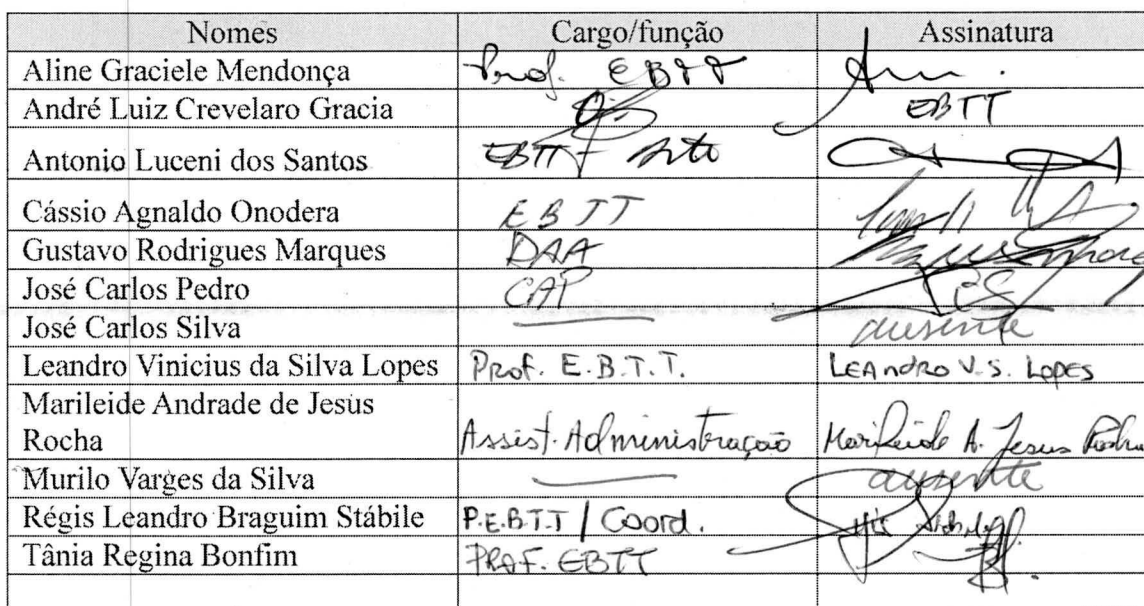 Nomes Cargo/função Assinatura
Aline Graciele Mendonça Prof. EBTT
André Luiz Crevelaro Gracia EBTT
Antonio Luceni dos Santos EBTT - Arte
Cássio Agnaldo Onodera EBTT
Gustavo Rodrigues Marques DAA
José Carlos Pedro CAP
José Carlos Silva ausente
Leandro Vinicius da Silva Lopes Prof. E.B.T.T. LEANDRO V.S. LOPES
Marileide Andrade de Jesus
Rocha Assist. Administração Marileide A. Jesus Rocha
Murilo Varges da Silva ausente
Régis Leandro Braguim Stábile P.E.B.T.T / Coord.
Tânia Regina Bonfim PROF. EBTT